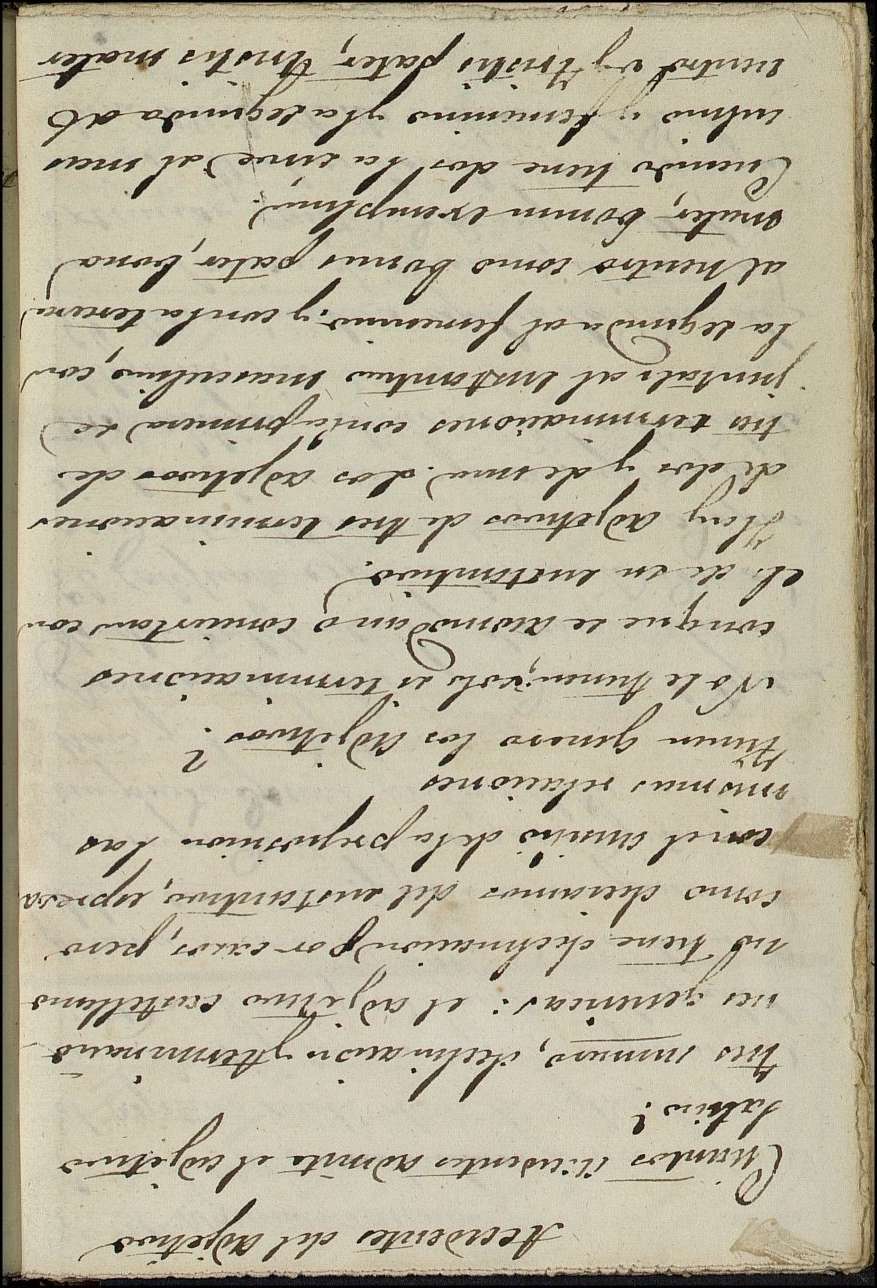 Accidentes del adjetivo
Cuantos accidentes admite el adjetivo
latino?
Tres numero, declinacion y terminacio
nes genericas: el adjetivo castellano
no tiene declinacion por casos, pero
como decíamos del sustantivo, espresa
con el ausilio de la preposicion las
mismas relaciones
Tienen genero los adjetivos?
No le tienen; solo es terminaciones
con que se acomodan o conciertan con
el de su sustantivo.
Hay adjetivos de tres terminaciones
de dos y de una. Los adjetivos de
tres terminaciones con la primera se
juntalo al sustantivo masculino, con
la segunda al femenino y con la tercera
al neutro como bonus pater, bona
mater, bonum exemplum.
Cuando tiene dos la sirve al mas
culino y femenino y la segunda al
neutro vg Tristis pater, tristis mater